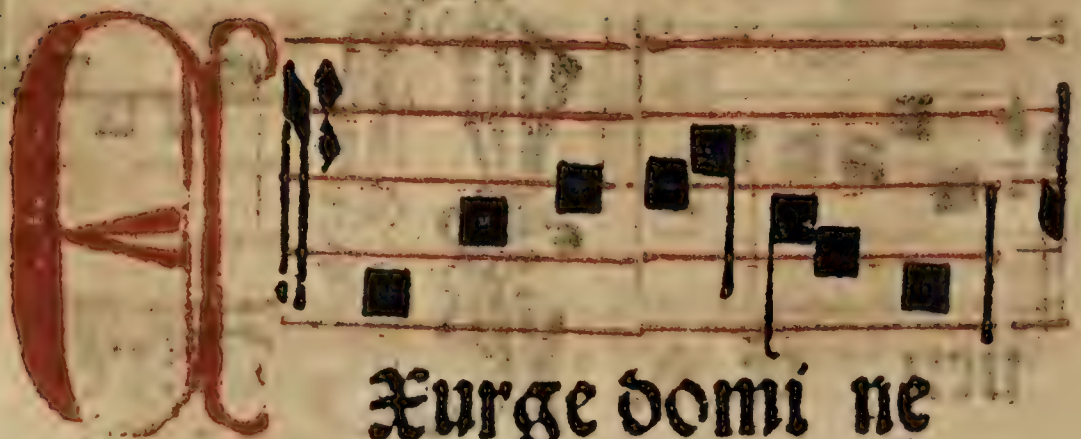 EXurge domi ne